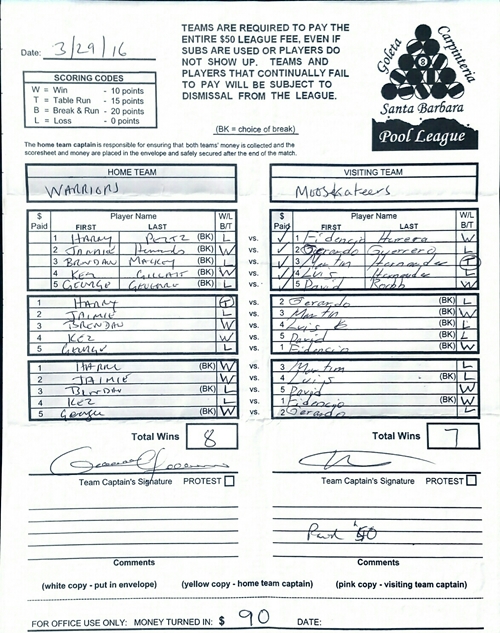 Date: 3/29/16
TEAMS ARE REQUIRED TO PAY THE
ENTIRE $50 LEAGUE FEE, EVEN IF
SUBS ARE USED OR PLAYERS DO
NOT SHOW UP. TEAMS AND
PLAYERS THAT CONTINUALLY FAIL
TO PAY WILL BE SUBJECT TO
DISMISSAL FROM THE LEAGUE.
Goleta
Carpinteria
8
Santa Barbara
Pool League
SCORING CODES
W = Win - 10 points
T = Table Run - 15 points
B = Break & Run - 20 points
L = Loss - 0 points
(BK = choice of break)
The home team captain is responsible for ensuring that both teams' money is collected and the
scoresheet and money are placed in the envelope and safely secured after the end of the match.
HOME TEAM
WARRIORS
VISITING TEAM
MOOSKateers
$ Paid Player Name FIRST LAST W/L B/T
$ Paid Player Name FIRST LAST W/L B/T
1 HARRY (BK) L vs. 1 Fidencio Herrera W
2 JAIMIE (BK) W vs. 2 Gerardo Guerrero L
3 BRENDAN MACKEY (BK) L vs. 3 Martin Hernandez T
4 KEZ (BK) W vs. 4 Luis Hernandez L
5 GEORGE (BK) L vs. 5 David W
1 HARRY T vs. 2 Gerardo (BK) L
2 JAIMIE L vs. 3 Martin (BK) W
3 BRENDAN W vs. 4 Luis (BK) L
4 KEZ W vs. 5 David (BK) L
5 GEORGE L vs. 1 Fidencio (BK) W
1 HARRY (BK) W vs. 3 Martin L
2 JAIMIE W vs. 4 Luis (BK) L
3 BRENDAN (BK) L vs. 5 David W
4 KEZ L vs. 1 Fidencio (BK) W
5 George (BK) W vs. 2 Gerardo L
Total Wins 8
Total Wins 7
Team Captain's Signature PROTEST
Team Captain's Signature PROTEST
Comments
Comments
(white copy - put in envelope) (yellow copy - home team captain) (pink copy - visiting team captain)
FOR OFFICE USE ONLY: MONEY TURNED IN: $ 90 DATE: